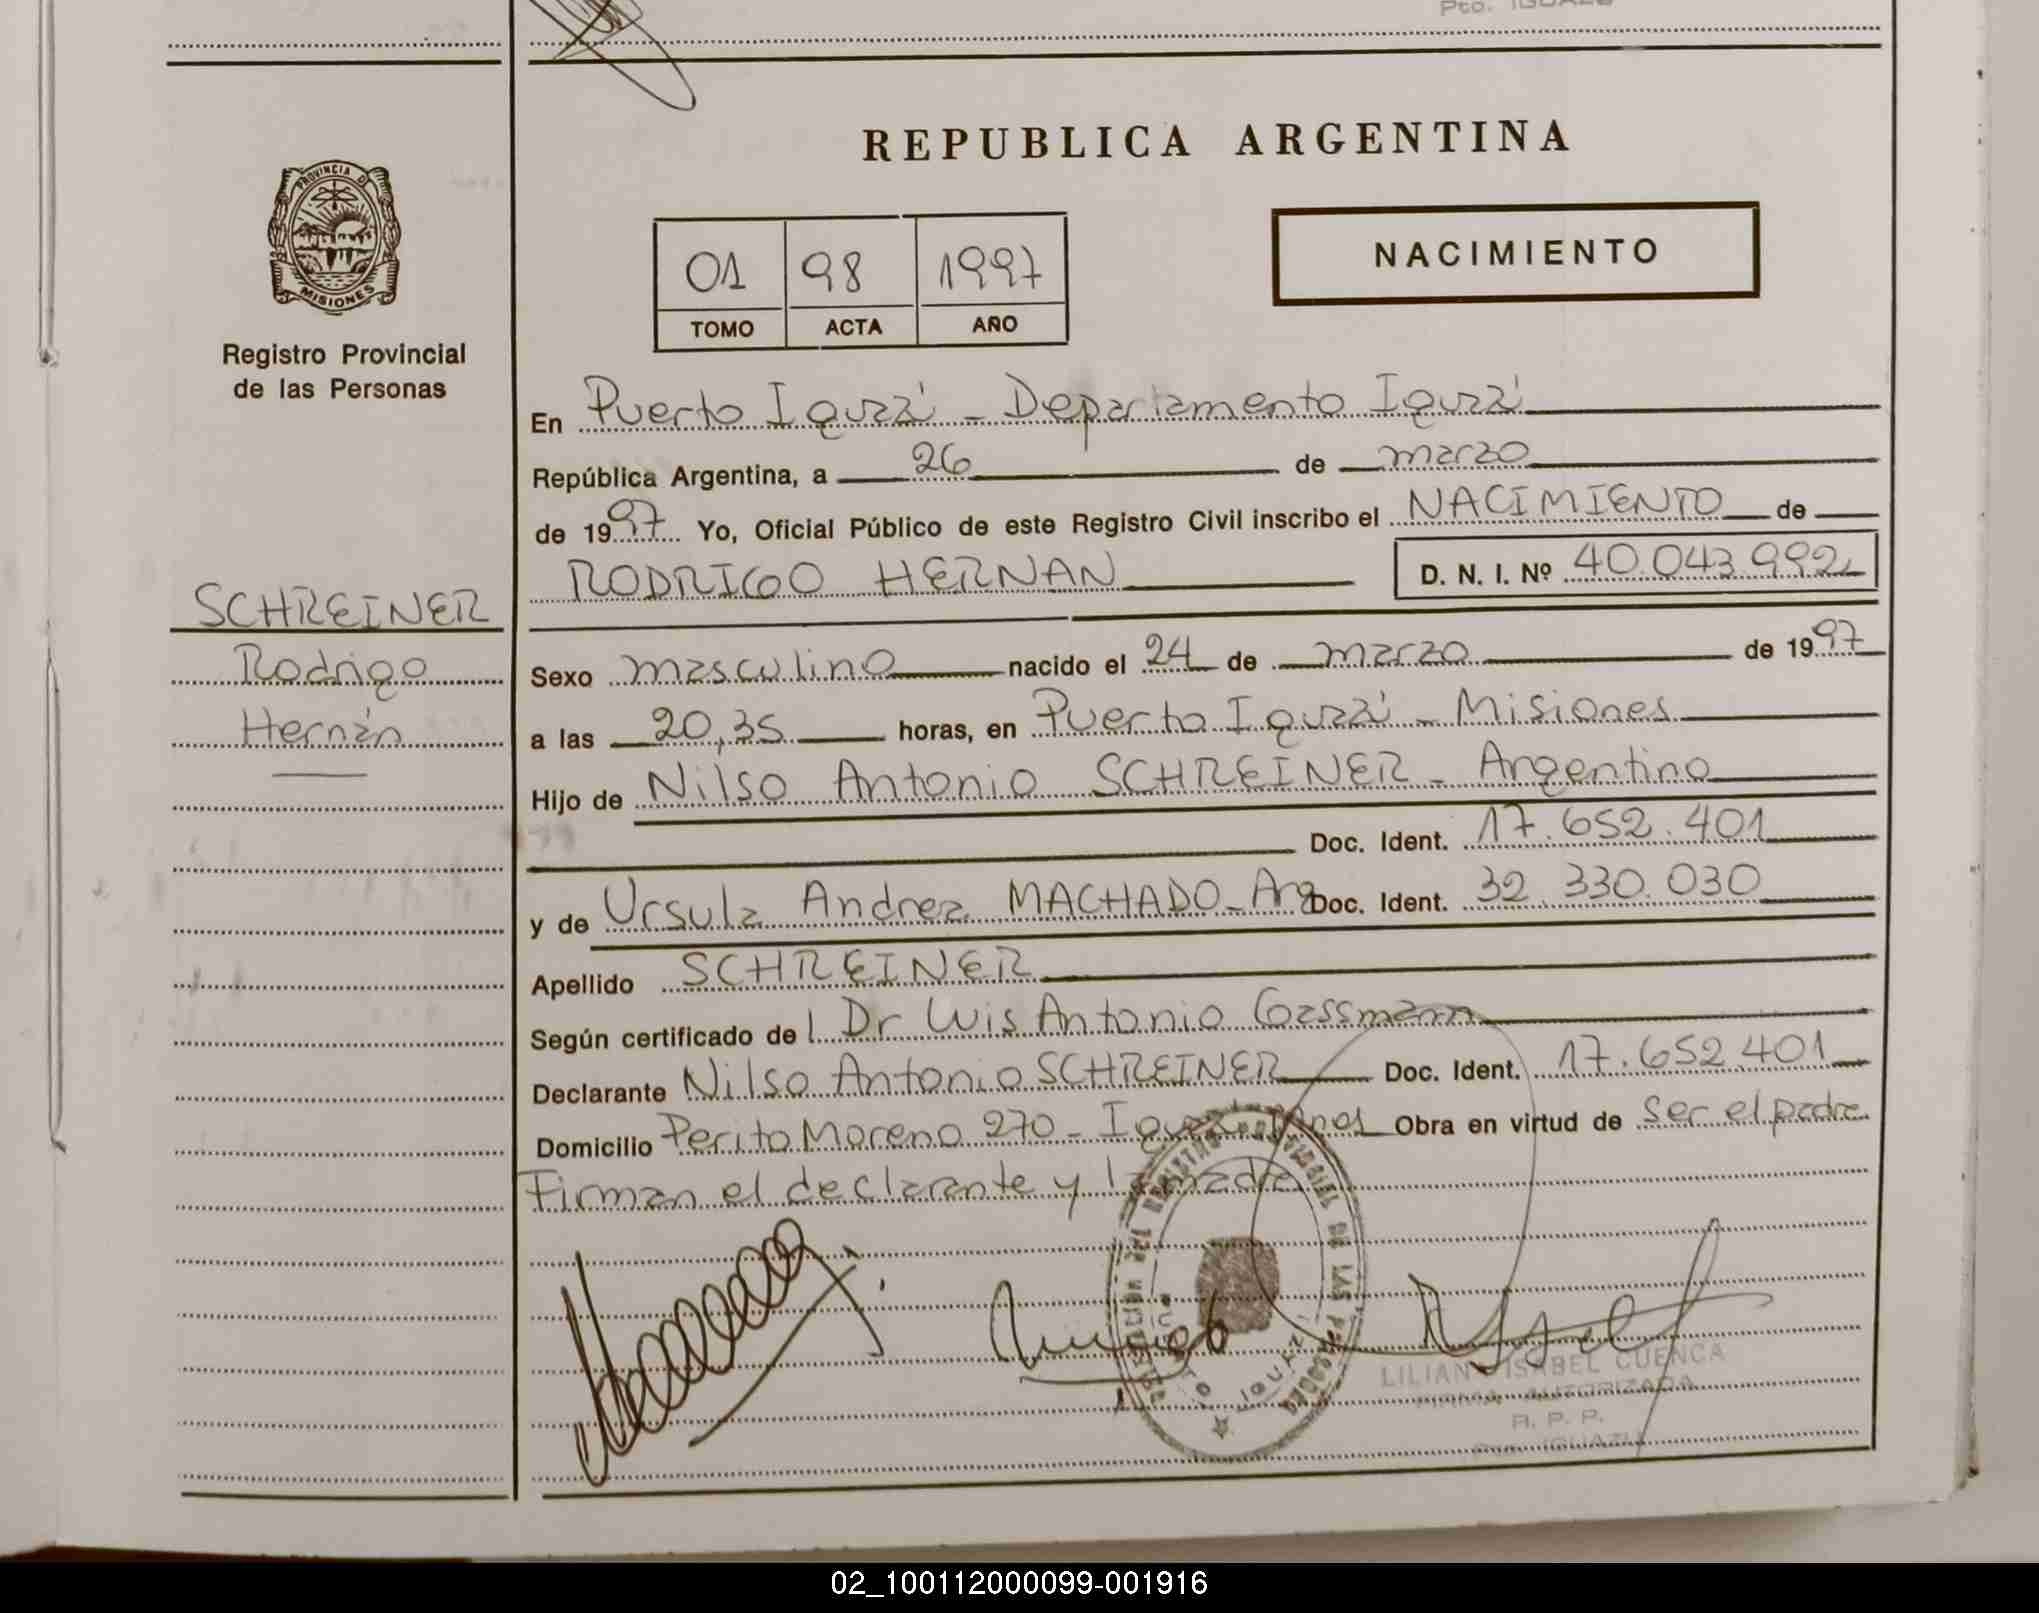 Pto. IGUAZU
REPUBLICA ARGENTINA
PROVINCIA D
MISIONES
Registro Provincial
de las Personas
01 98 1997
TOMO ACTA AÑO
NACIMIENTO
En Puerto Iguazú - Departamento Iguazú
República Argentina, a 26 de marzo
de 1997 Yo, Oficial Público de este Registro Civil inscribo el NACIMIENTO de
RODRIGO HERNAN D. N. I. Nº 40.043.992
SCHREINER
Rodrigo
Hernán
Sexo masculino nacido el 24 de marzo de 1997
a las 20,35 horas, en Puerto Iguazú - Misiones
Hijo de Nilso Antonio SCHREINER - Argentino
Doc. Ident. 17.652.401
y de Ursula Andrea MACHADO - Arg Doc. Ident. 32.330.030
Apellido SCHREINER
Según certificado del Dr Luis Antonio Gassmann
Declarante Nilso Antonio SCHREINER Doc. Ident. 17.652.401
Domicilio Perito Moreno 270 - Obra en virtud de ser el padre
Firman el declarante y la madre
LILIANA ISABEL CUENCA
FIRMA AUTORIZADA
R. P. P.
Pto. IGUAZU
02_100112000099-001916